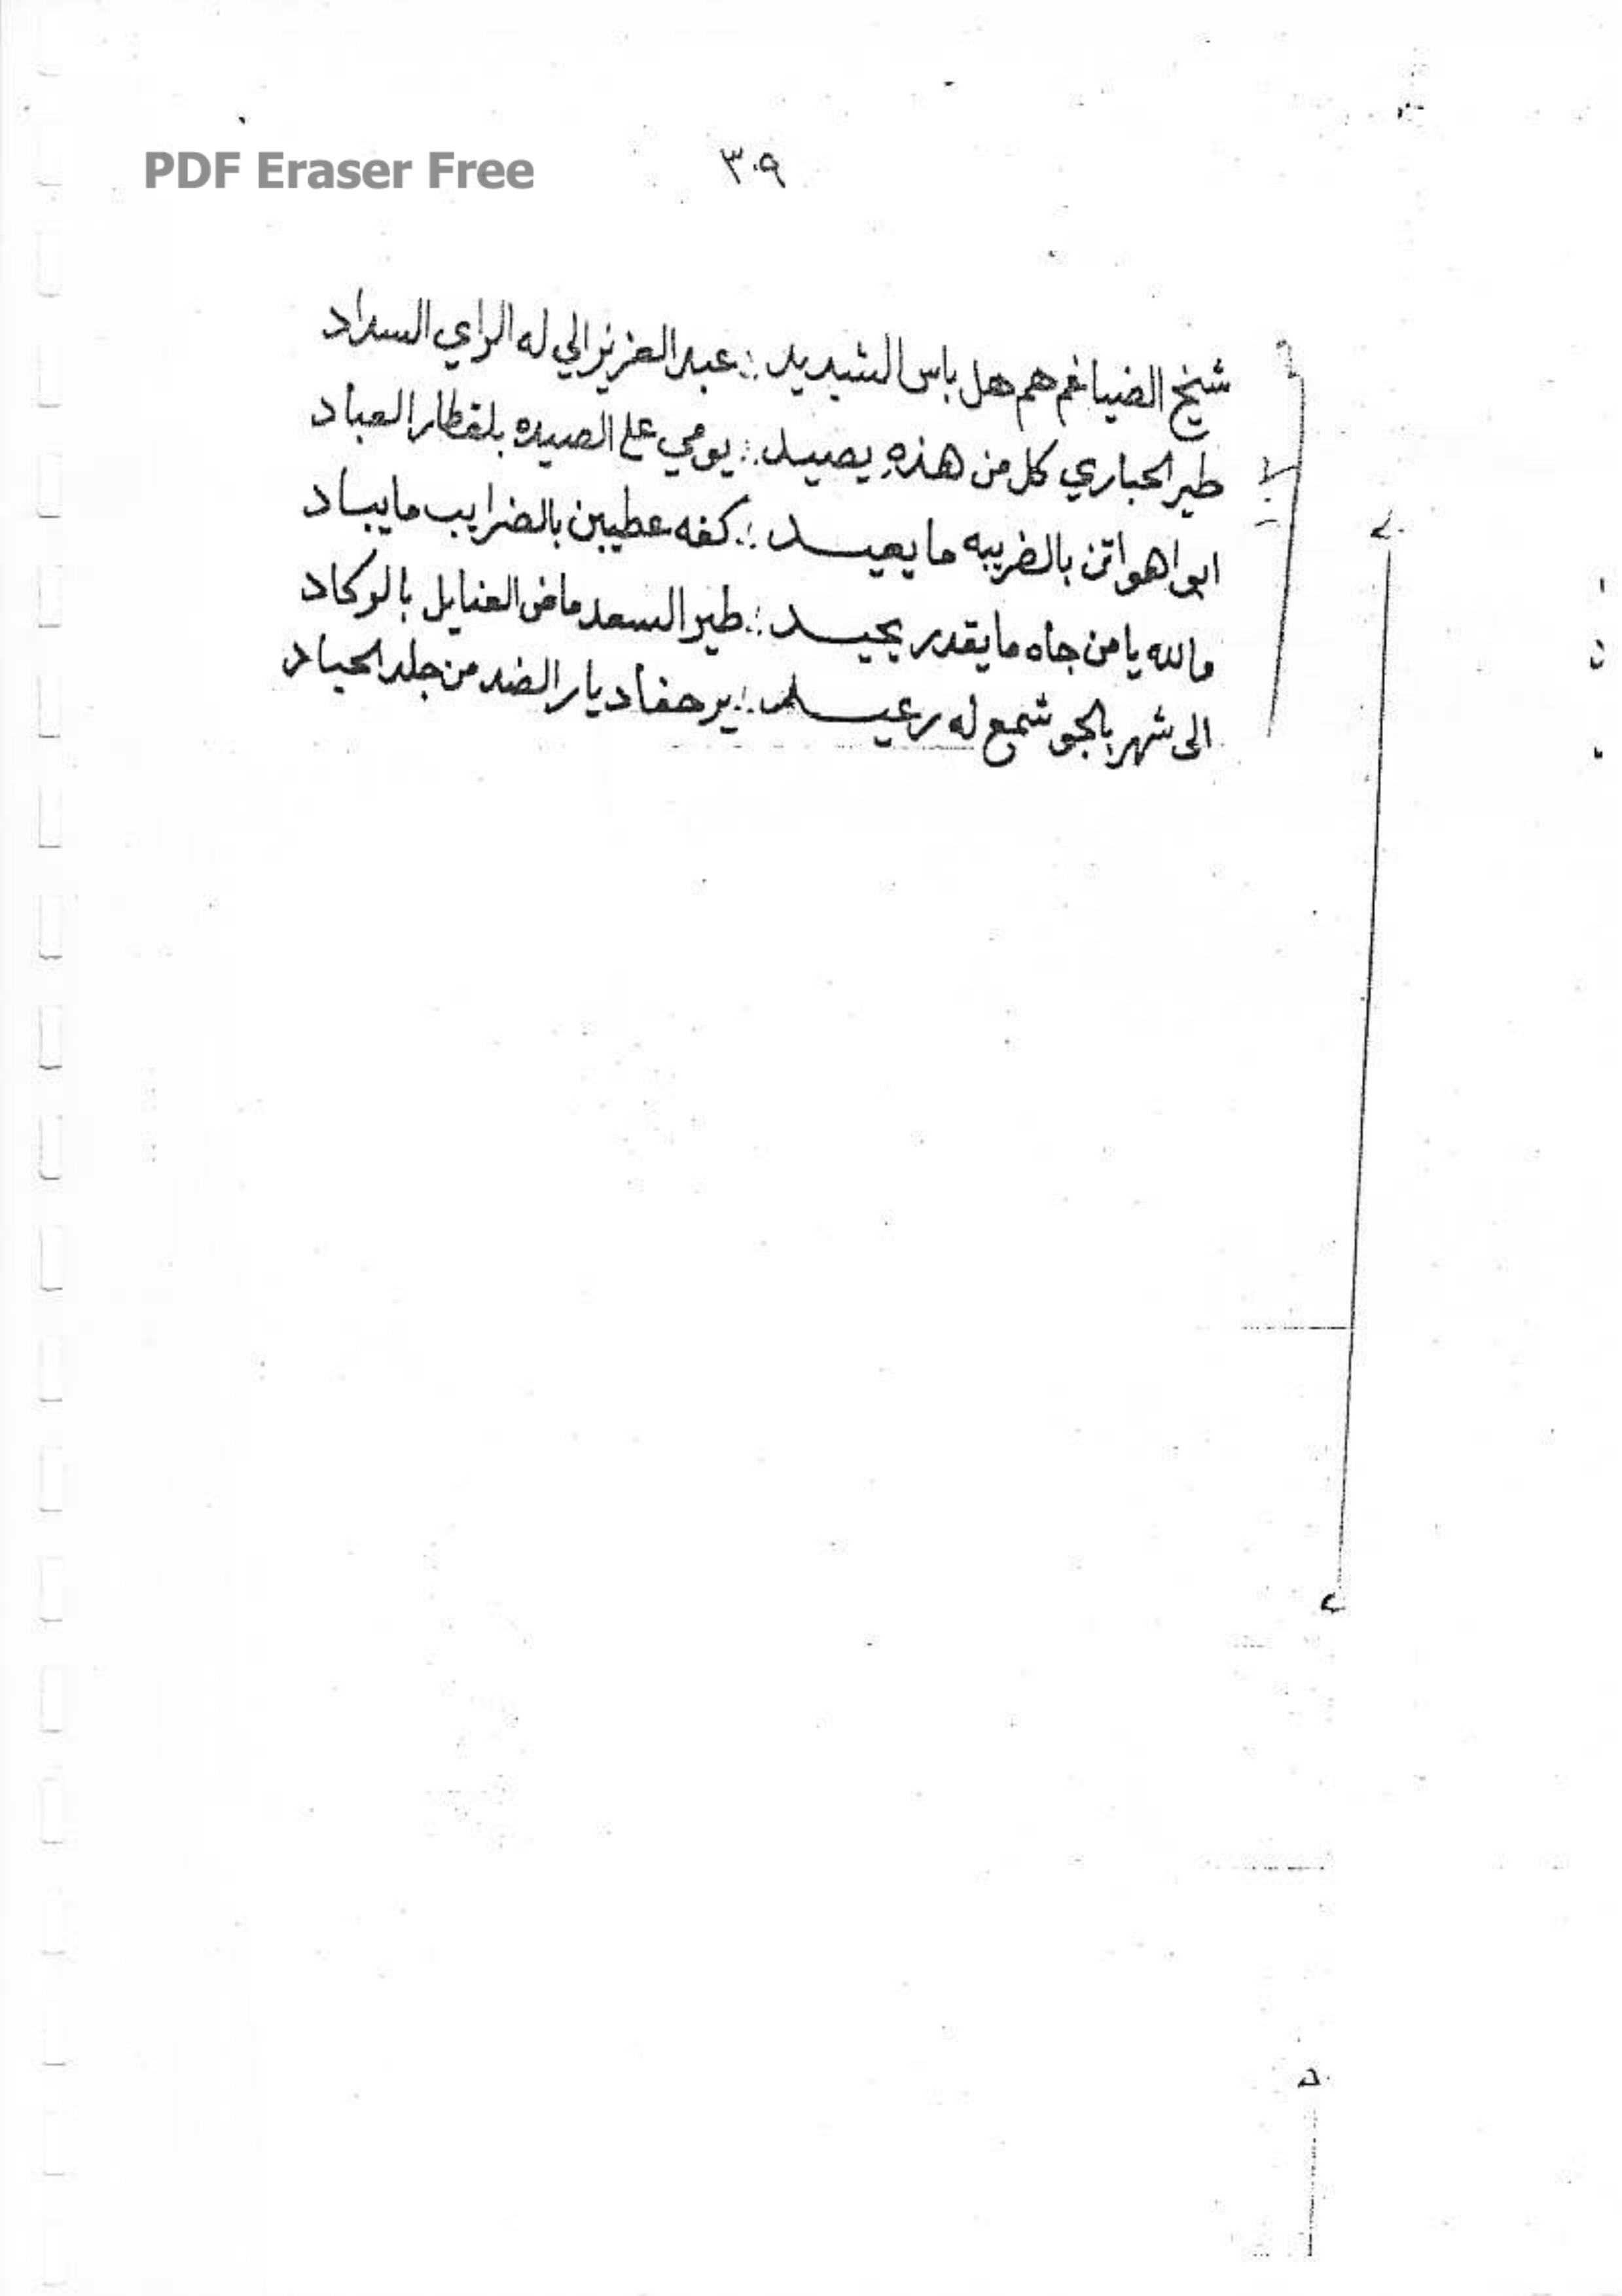 PDF Eraser Free
٣٠٩
شيخ الضياغم هم هل باس الشديد ∴ عبدالعزيز الي له الراي السداد
طير الحباري كل من هذه يصيد ∴ يومي على الصيده بلقطار العباد
ابو اهواتن بالضريبه ما يعيد ∴ كفه عطيبن بالضرايب ما يباد
والله يا من جاه ما يقدر يحيد ∴ طير السعد ماضي الفنايل بالوكاد
الى شهر بالجو شمع له رعيد ∴ يرهفا ديار الضد من جلد الحياد